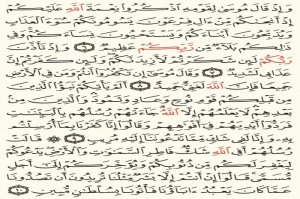 وَإِذْ قَالَ مُوسَىٰ لِقَوْمِهِ اذْكُرُوا نِعْمَةَ اللَّهِ عَلَيْكُمْ
إِذْ أَنجَاكُم مِّنْ آلِ فِرْعَوْنَ يَسُومُونَكُمْ سُوءَ الْعَذَابِ
وَيُذَبِّحُونَ أَبْنَاءَكُمْ وَيَسْتَحْيُونَ نِسَاءَكُمْ وَفِي
ذَٰلِكُم بَلَاءٌ مِّن رَّبِّكُمْ عَظِيمٌ ٦ وَإِذْ تَأَذَّنَ
رَبُّكُمْ لَئِن شَكَرْتُمْ لَأَزِيدَنَّكُمْ وَلَئِن كَفَرْتُمْ إِنَّ
عَذَابِي لَشَدِيدٌ ٧ وَقَالَ مُوسَىٰ إِن تَكْفُرُوا أَنتُمْ وَمَن فِي الْأَرْضِ
جَمِيعًا فَإِنَّ اللَّهَ لَغَنِيٌّ حَمِيدٌ ٨ أَلَمْ يَأْتِكُمْ نَبَأُ الَّذِينَ
مِن قَبْلِكُمْ قَوْمِ نُوحٍ وَعَادٍ وَثَمُودَ وَالَّذِينَ مِن
بَعْدِهِمْ لَا يَعْلَمُهُمْ إِلَّا اللَّهُ جَاءَتْهُمْ رُسُلُهُم بِالْبَيِّنَاتِ
فَرَدُّوا أَيْدِيَهُمْ فِي أَفْوَاهِهِمْ وَقَالُوا إِنَّا كَفَرْنَا بِمَا أُرْسِلْتُم
بِهِ وَإِنَّا لَفِي شَكٍّ مِّمَّا تَدْعُونَنَا إِلَيْهِ مُرِيبٍ ٩ قَالَتْ
رُسُلُهُمْ أَفِي اللَّهِ شَكٌّ فَاطِرِ السَّمَاوَاتِ وَالْأَرْضِ يَدْعُوكُمْ
لِيَغْفِرَ لَكُم مِّن ذُنُوبِكُمْ وَيُؤَخِّرَكُمْ إِلَىٰ أَجَلٍ
مُّسَمًّى قَالُوا إِنْ أَنتُمْ إِلَّا بَشَرٌ مِّثْلُنَا تُرِيدُونَ أَن تَصُدُّونَا
عَمَّا كَانَ يَعْبُدُ آبَاؤُنَا فَأْتُونَا بِسُلْطَانٍ مُّبِينٍ ١٠